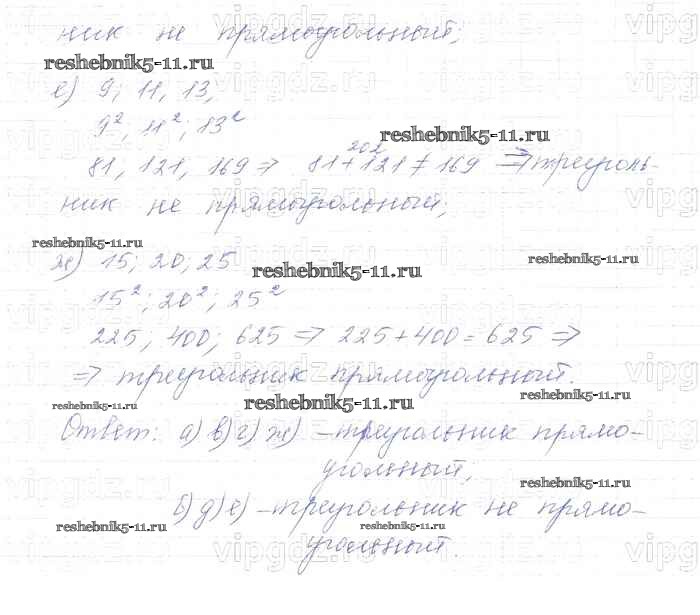 ник не прямоугольный;
reshebnik5-11.ru
е) 9; 11, 13,
9², 11², 13²
reshebnik5-11.ru
202
81, 121, 169 ⇒ 81+121≠169 ⇒ треуголь-
ник не прямоугольный;
reshebnik5-11.ru
ж) 15; 20; 25
reshebnik5-11.ru
reshebnik5-11.ru
15²; 20²; 25²
225; 400; 625 ⇒ 225+400=625 ⇒
⇒ треугольник прямоугольный.
reshebnik5-11.ru
reshebnik5-11.ru
reshebnik5-11.ru
Ответ: а) в) г) ж) – треугольник прямо-
угольный;
reshebnik5-11.ru
б) д) е) – треугольник не прямо-
reshebnik5-11.ru
reshebnik5-11.ru
угольный.
vipgdz.ru